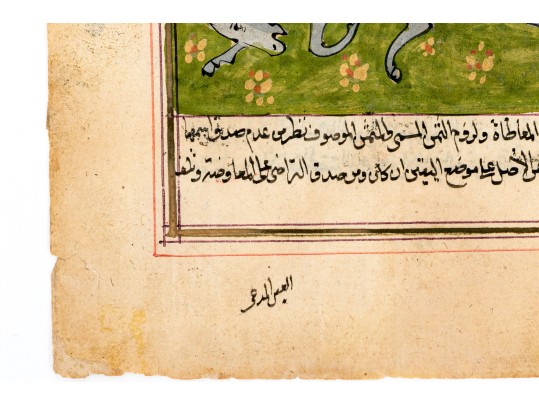 المعاطاة ولزوم الثمن المسمى والمثمن الموصوف نظر من عدم صدق
الأصل على موضع اليقين ان كان ومن صدق التراضي على المعاوضة